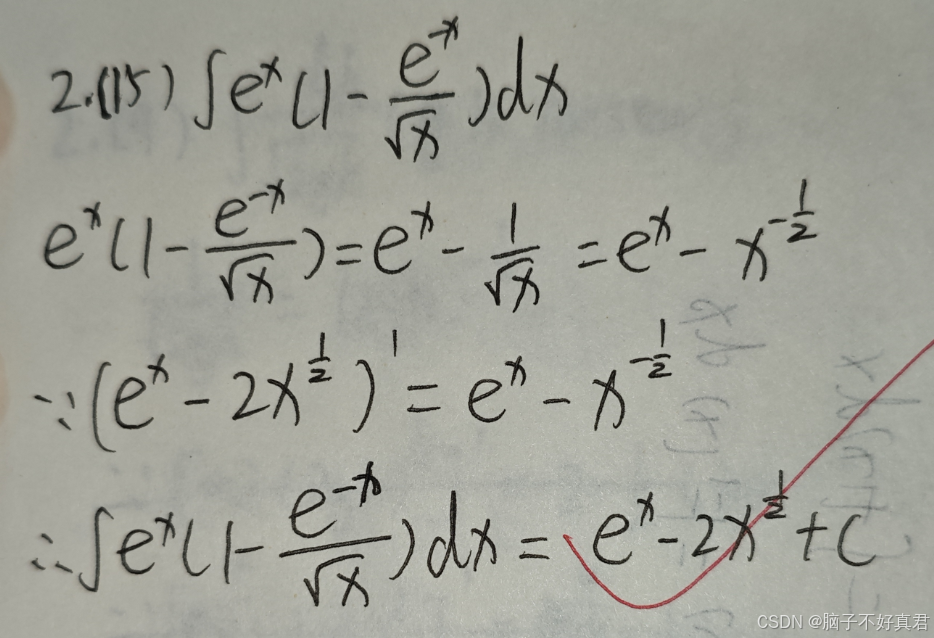 2.(15) ∫e^x(1-e^{-x}/√x)dx
e^x(1-e^{-x}/√x)=e^x-1/√x=e^x-x^{-1/2}
∵(e^x-2x^{1/2})'=e^x-x^{-1/2}
∴∫e^x(1-e^{-x}/√x)dx=e^x-2x^{1/2}+C
CSDN @脑子不好真君